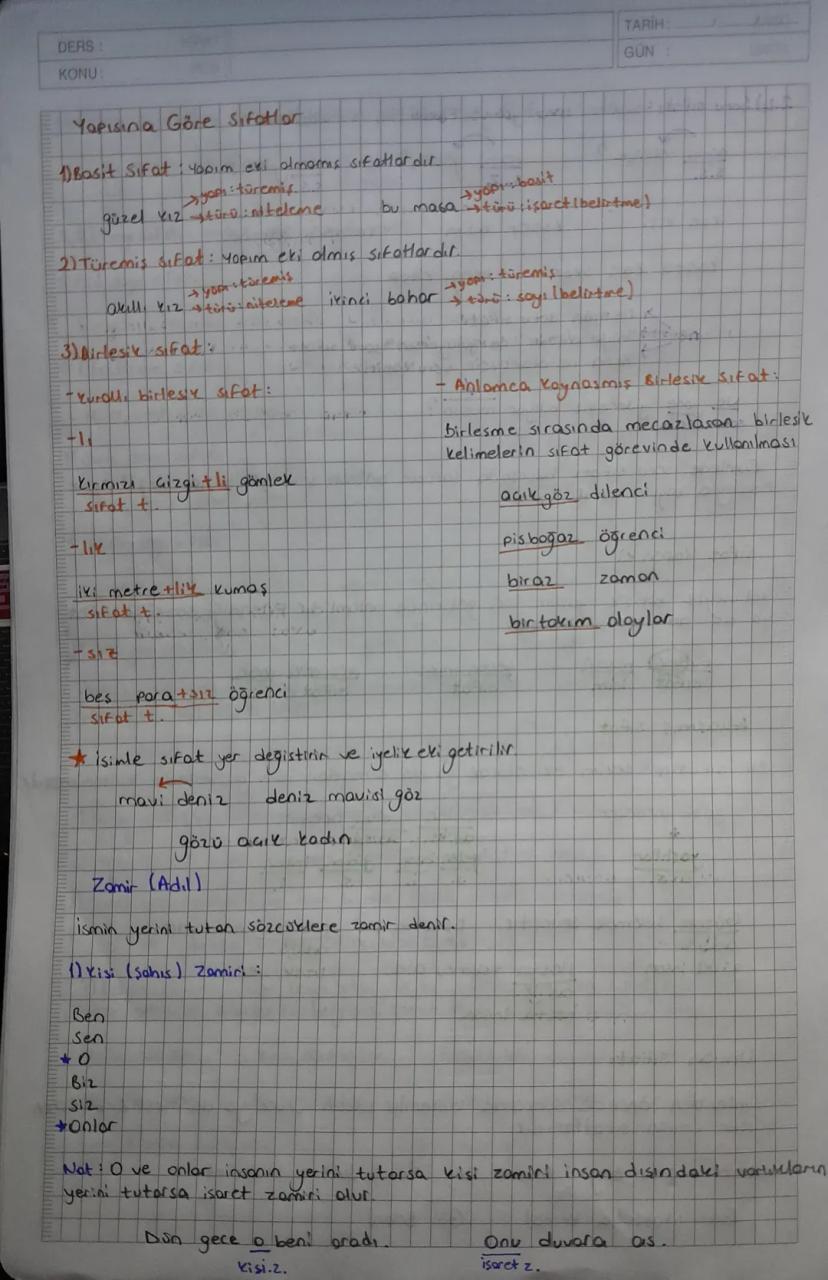 DERS :
KONU:
TARİH: / /
GÜN :
Yapısına Göre Sıfatlar
1) Basit Sıfat : yapım eki almamış sıfatlardır.
→yapı: türemiş →yapı: basit
güzel kız →türü: niteleme bu masa →türü: işaret (belirtme)
2) Türemiş Sıfat : yapım eki almış sıfatlardır.
→yapı: türemiş →yapı: türemiş
akıllı kız →türü: niteleme ikinci bahar →türü: sayı (belirtme)
3) Birleşik sıfat :
- Kurallı birleşik sıfat :
-lı
kırmızı çizgi+li gömlek
sıfat t.
-lik
iki metre+lik kumaş
sıfat t.
-sız
beş para+sız öğrenci
sıfat t.
- Anlamca Kaynaşmış Birleşik Sıfat :
Birleşme sırasında mecazlaşan birleşik
kelimelerin sıfat görevinde kullanılması
açıkgöz dilenci
pisboğaz öğrenci
biraz zaman
birtakım olaylar
★ isimle sıfat yer değiştirir ve iyelik eki getirilir
mavi deniz deniz mavisi göz
gözü açık kadın
Zamir (Adıl)
ismin yerini tutan sözcüklere zamir denir.
1) Kişi (şahıs) Zamiri :
Ben
Sen
★ O
Biz
siz
★ Onlar
Not : O ve onlar insanın yerini tutarsa kişi zamiri insan dışındaki varlıkların
yerini tutarsa işaret zamiri olur.
Dün gece o beni aradı. Onu duvara as.
kişi.z. işaret z.